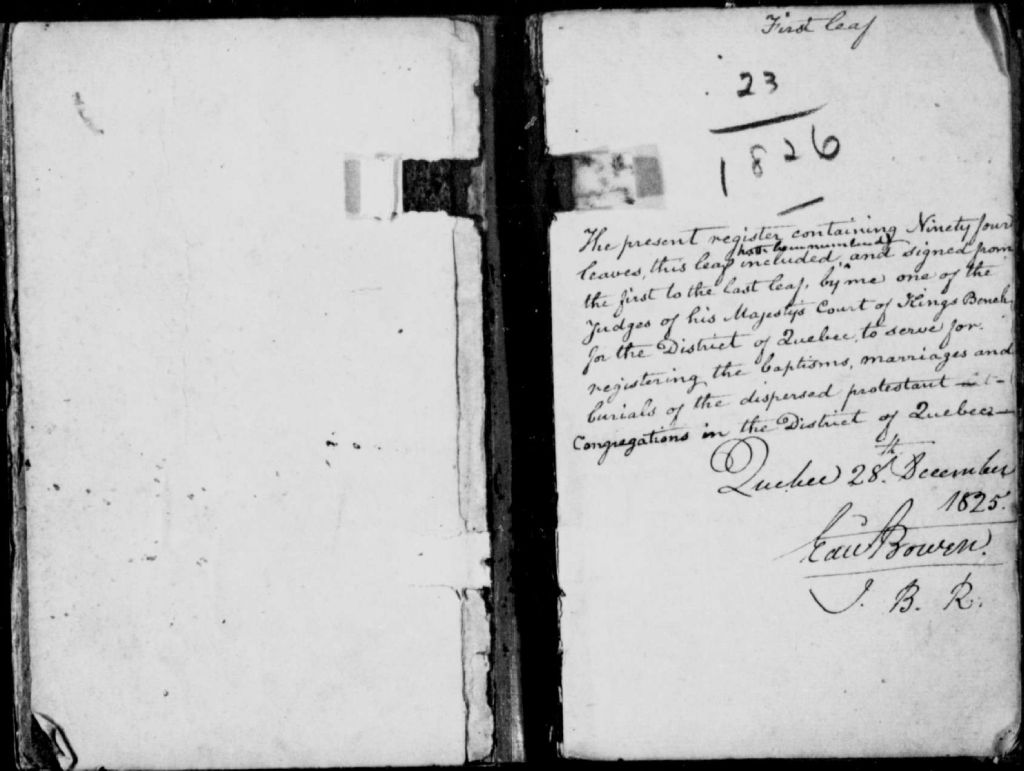 First leaf
23
1826
The present register containing Ninety four
has been numbered
leaves, this leaf included, and signed from
the first to the last leaf, by me one of the
Judges of his Majestys Court of Kings Bench
for the District of Quebec, to serve for
registering the baptisms, marriages and
burials of the dispersed protestant
Congregations in the District of Quebec—
Quebec 28th December
1825.
Edwd Bowen.
J. B. R.